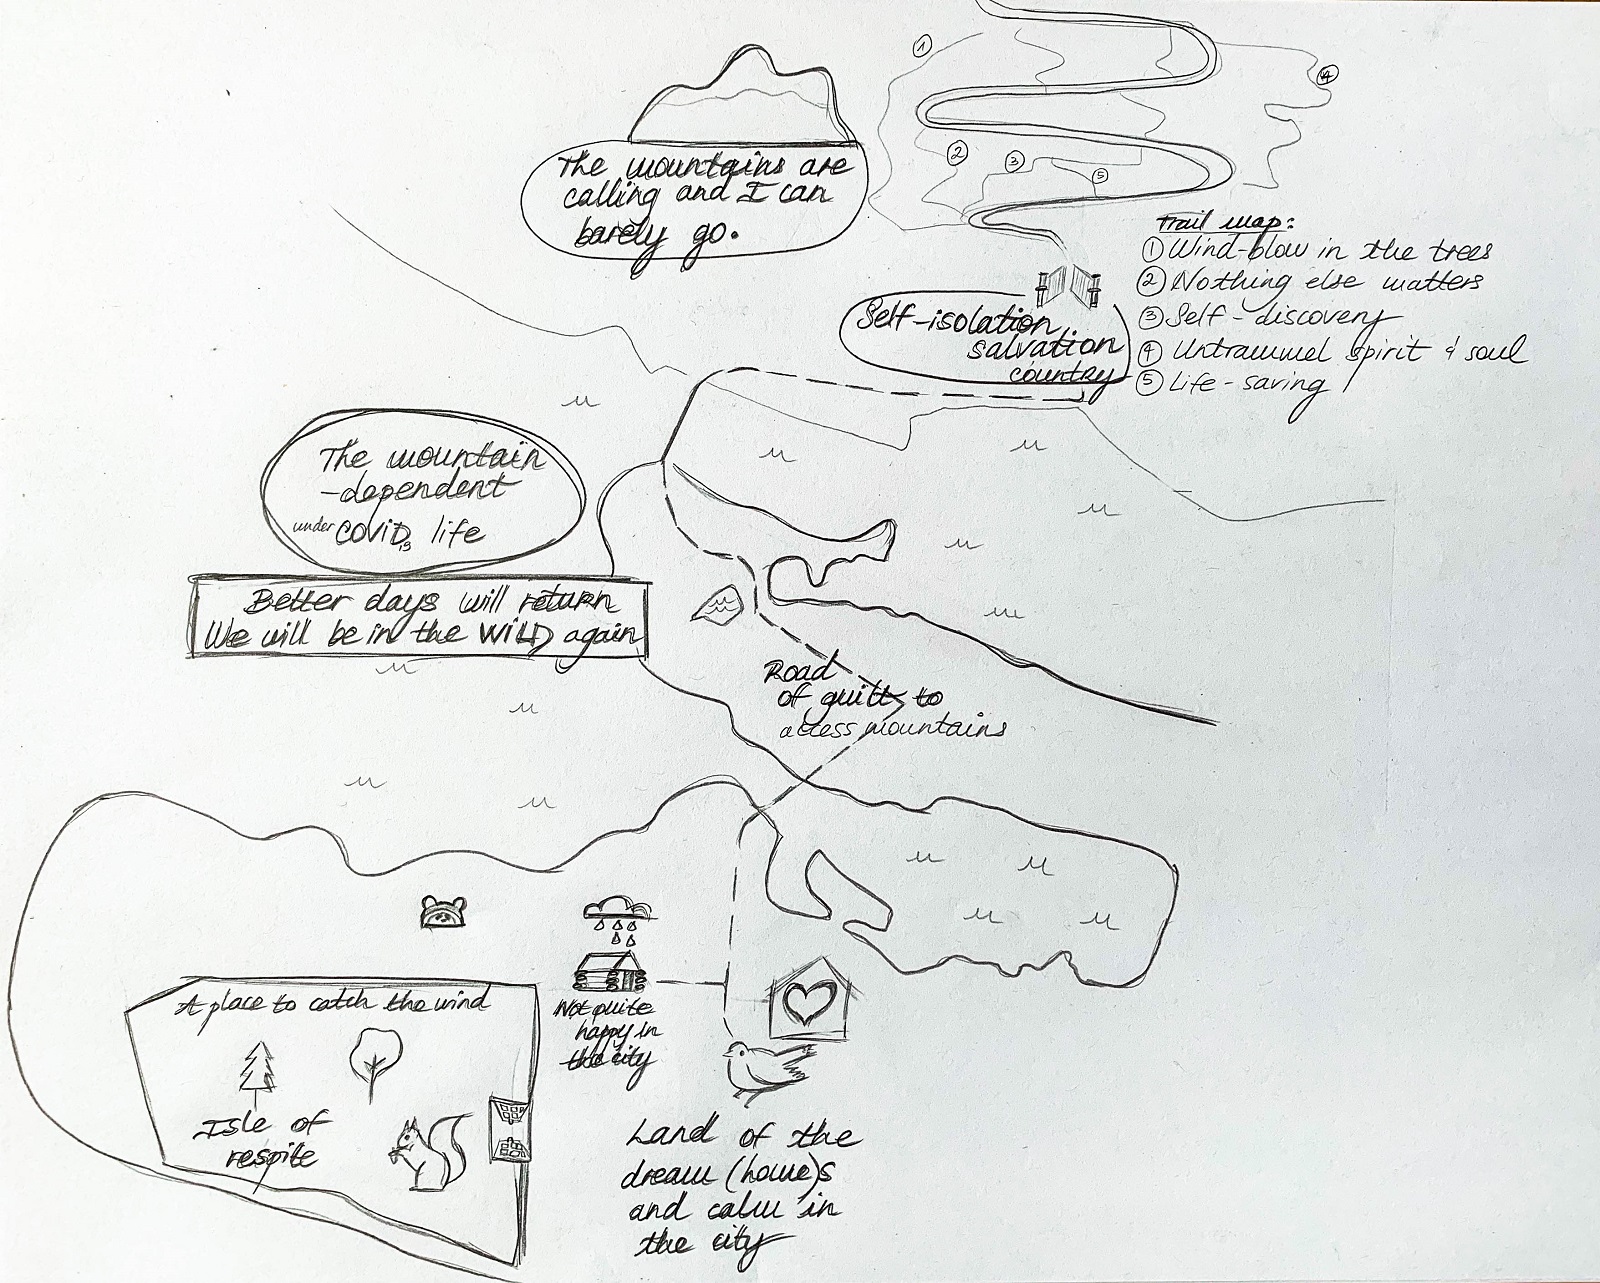 The mountains are
calling and I can
barely go.
1
2
3
4
5
Trail map:
① Wind-blow in the trees
② Nothing else matters
③ Self-discovery
④ Untrammel spirit & soul
⑤ Life-saving
Self-isolation
salvation
country
The mountain
-dependent
under COViD19 life
Better days will return
We will be in the WiLD again
Road
of guilt to
access mountains
A place to catch the wind
Isle of
respite
Not quite
happy in
the city
Land of the
dream (home)s
and calm in
the city